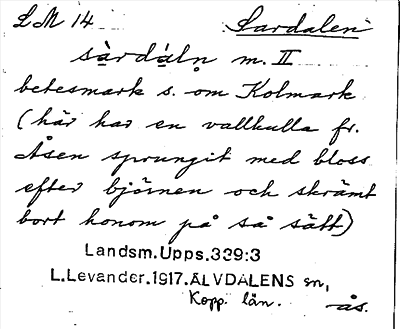 LM 14 Sardalen
sàrdáln m. II
betesmark s. om Kolmark
(här har en vallkulla fr.
Åsen sprungit med bloss
efter björnen och skrämt
bort honom på så sätt)
Landsm.Upps.339:3
L.Levander.1917.ÄLVDALENS sn,
Kopp. län. ås.